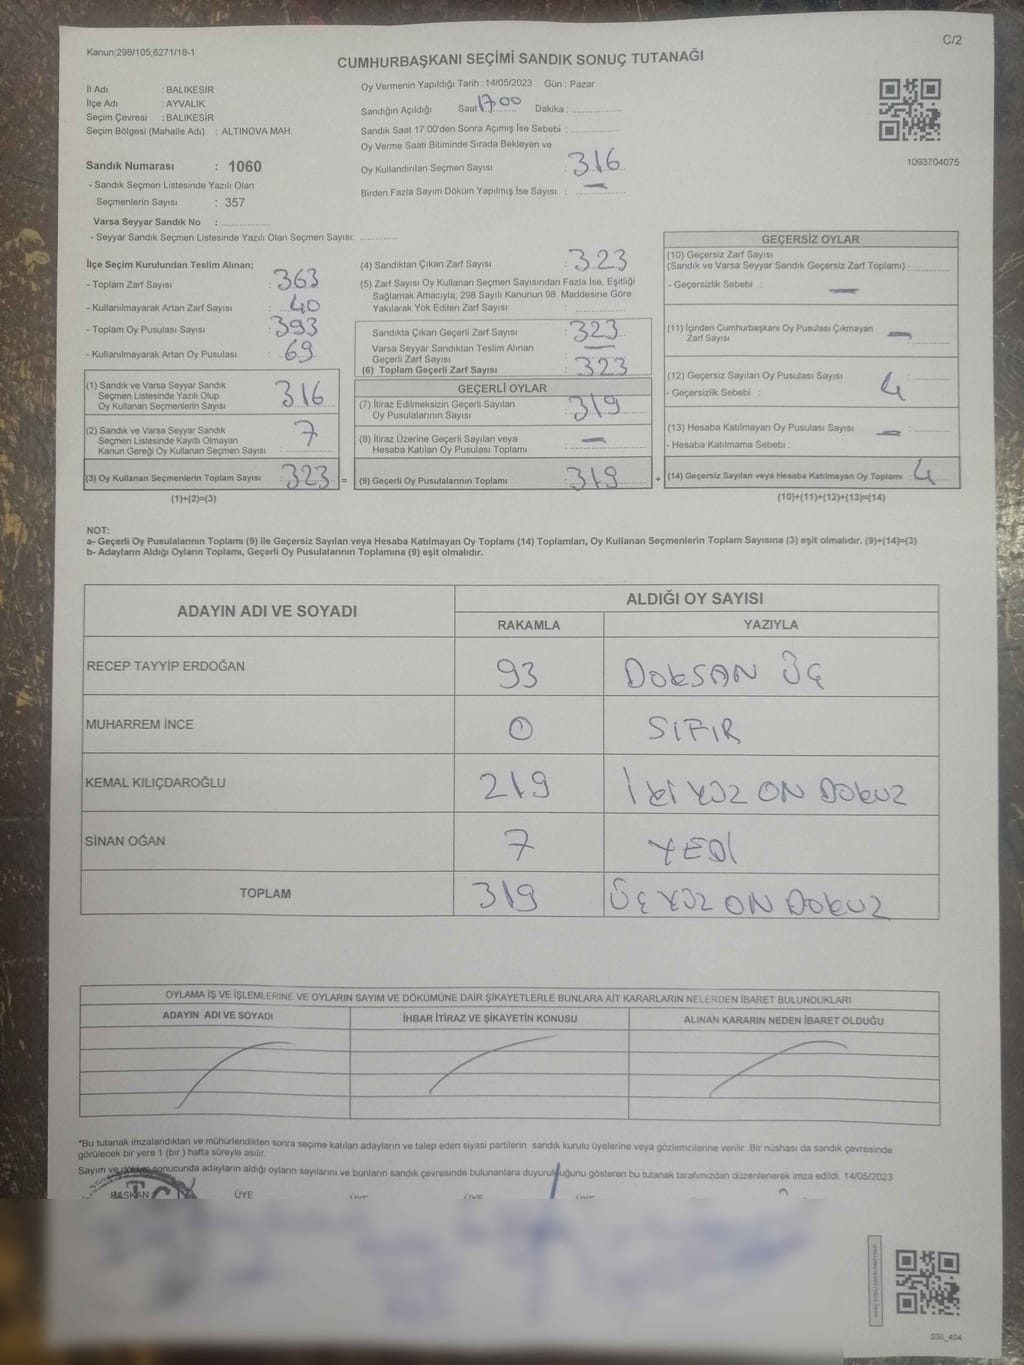 Kanun;298/105;6271/18-1
C/2
CUMHURBAŞKANI SEÇİMİ SANDIK SONUÇ TUTANAĞI
İl Adı : BALIKESİR
İlçe Adı : AYVALIK
Seçim Çevresi : BALIKESİR
Seçim Bölgesi (Mahalle Adı) : ALTINOVA MAH.
Sandık Numarası : 1060
- Sandık Seçmen Listesinde Yazılı Olan
Seçmenlerin Sayısı : 357
Varsa Seyyar Sandık No :
- Seyyar Sandık Seçmen Listesinde Yazılı Olan Seçmen Sayısı:
Oy Vermenin Yapıldığı Tarih : 14/05/2023 Gün : Pazar
Sandığın Açıldığı Saat 17.00 Dakika :
Sandık Saat 17:00'den Sonra Açımış İse Sebebi :
Oy Verme Saati Bitiminde Sırada Bekleyen ve
Oy Kullandırılan Seçmen Sayısı : 316
Birden Fazla Sayım Döküm Yapılmış İse Sayısı : —
1093704075
İlçe Seçim Kurulundan Teslim Alınan;
- Toplam Zarf Sayısı : 363
- Kullanılmayarak Artan Zarf Sayısı : 40
- Toplam Oy Pusulası Sayısı : 393
- Kullanılmayarak Artan Oy Pusulası : 69
(1) Sandık ve Varsa Seyyar Sandık
Seçmen Listesinde Yazılı Olup
Oy Kullanan Seçmenlerin Sayısı 316
(2) Sandık ve Varsa Seyyar Sandık
Seçmen Listesinde Kayıtlı Olmayan
Kanun Gereği Oy Kullanan Seçmen Sayısı 7
(3) Oy Kullanan Seçmenlerin Toplam Sayısı : 323 =
(1)+(2)=(3)
(4) Sandıktan Çıkan Zarf Sayısı : 323
(5) Zarf Sayısı Oy Kullanan Seçmen Sayısından Fazla İse, Eşitliği
Sağlamak Amacıyla; 298 Sayılı Kanunun 98. Maddesine Göre
Yakılarak Yok Edilen Zarf Sayısı :
Sandıkta Çıkan Geçerli Zarf Sayısı : 323
Varsa Seyyar Sandıktan Teslim Alınan
Geçerli Zarf Sayısı : —
(6) Toplam Geçerli Zarf Sayısı : 323
GEÇERLİ OYLAR
(7) İtiraz Edilmeksizin Geçerli Sayılan
Oy Pusulalarının Sayısı : 319
(8) İtiraz Üzerine Geçerli Sayılan veya
Hesaba Katılan Oy Pusulası Toplamı : —
(9) Geçerli Oy Pusulalarının Toplamı : 319 +
GEÇERSİZ OYLAR
(10) Geçersiz Zarf Sayısı
(Sandık ve Varsa Seyyar Sandık Geçersiz Zarf Toplamı) :
- Geçersizlik Sebebi : —
(11) İçinden Cumhurbaşkanı Oy Pusulası Çıkmayan
Zarf Sayısı : —
(12) Geçersiz Sayılan Oy Pusulası Sayısı : 4
- Geçersizlik Sebebi :
(13) Hesaba Katılmayan Oy Pusulası Sayısı : —
- Hesaba Katılmama Sebebi :
(14) Geçersiz Sayılan veya Hesaba Katılmayan Oy Toplamı : 4
(10)+(11)+(12)+(13)=(14)
NOT:
a- Geçerli Oy Pusulalarının Toplamı (9) ile Geçersiz Sayılan veya Hesaba Katılmayan Oy Toplamı (14) Toplamları, Oy Kullanan Seçmenlerin Toplam Sayısına (3) eşit olmalıdır. (9)+(14)=(3)
b- Adayların Aldığı Oyların Toplamı, Geçerli Oy Pusulalarının Toplamına (9) eşit olmalıdır.
ADAYIN ADI VE SOYADI ALDIĞI OY SAYISI
RAKAMLA YAZIYLA
RECEP TAYYİP ERDOĞAN 93 DOKSAN ÜÇ
MUHARREM İNCE 0 SIFIR
KEMAL KILIÇDAROĞLU 219 İKİ YÜZ ON DOKUZ
SİNAN OĞAN 7 YEDİ
TOPLAM 319 ÜÇ YÜZ ON DOKUZ
OYLAMA İŞ VE İŞLEMLERİNE VE OYLARIN SAYIM VE DÖKÜMÜNE DAİR ŞİKAYETLERLE BUNLARA AİT KARARLARIN NELERDEN İBARET BULUNDUKLARI
ADAYIN ADI VE SOYADI İHBAR İTİRAZ VE ŞİKAYETİN KONUSU ALINAN KARARIN NEDEN İBARET OLDUĞU
*Bu tutanak imzalandıktan ve mühürlendikten sonra seçime katılan adayların ve talep eden siyasi partilerin sandık kurulu üyelerine veya gözlemcilerine verilir. Bir nüshası da sandık çevresinde
görülecek bir yere 1 (bir) hafta süreyle asılır.
Sayım ve döküm sonucunda adayların aldığı oyların sayılarını ve bunların sandık çevresinde bulunanlara duyurulduğunu gösteren bu tutanak tarafımızdan düzenlenerek imza edildi. 14/05/2023
BAŞKAN ÜYE ÜYE ÜYE ÜYE
SBI_404